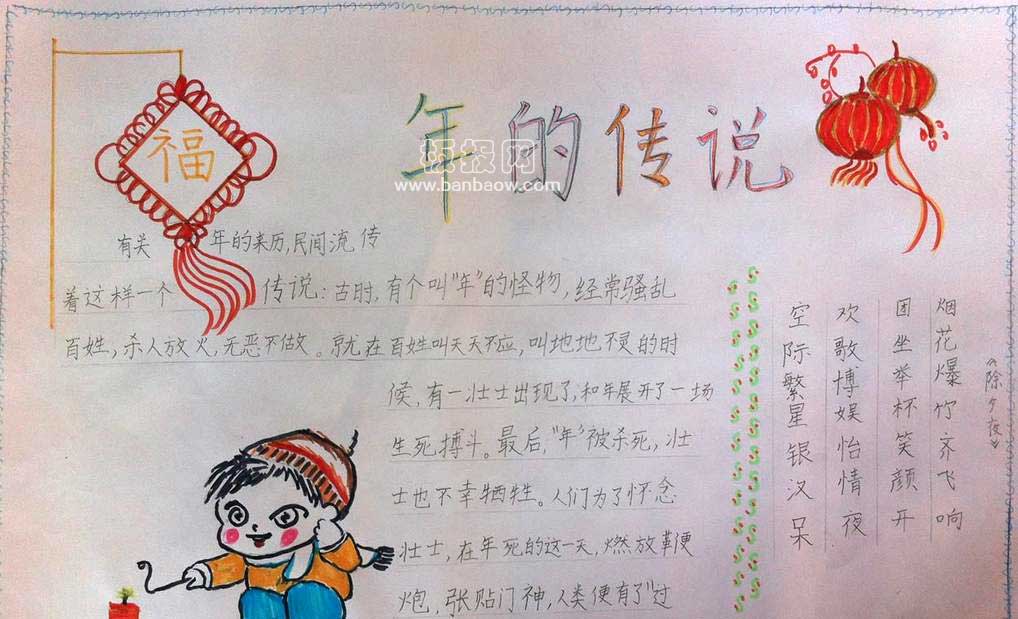 福
年的传说
报网
www.banbaow.com
有关 年的来历,民间流传
着这样一个 传说:古时,有个叫"年"的怪物,经常骚乱
百姓,杀人放火,无恶不做。就在百姓叫天天不应,叫地地不灵的时
候,有一壮士出现了,和年展开了一场
生死搏斗。最后,"年"被杀死,壮
士也不幸牺牲。人们为了怀念
壮士,在年死的这一天,燃放鞭
炮,张贴门神,人类便有了"过
《除夕夜》
烟花爆竹齐飞响
团坐举杯笑颜开
欢歌博娱怡情夜
空际繁星银汉呆